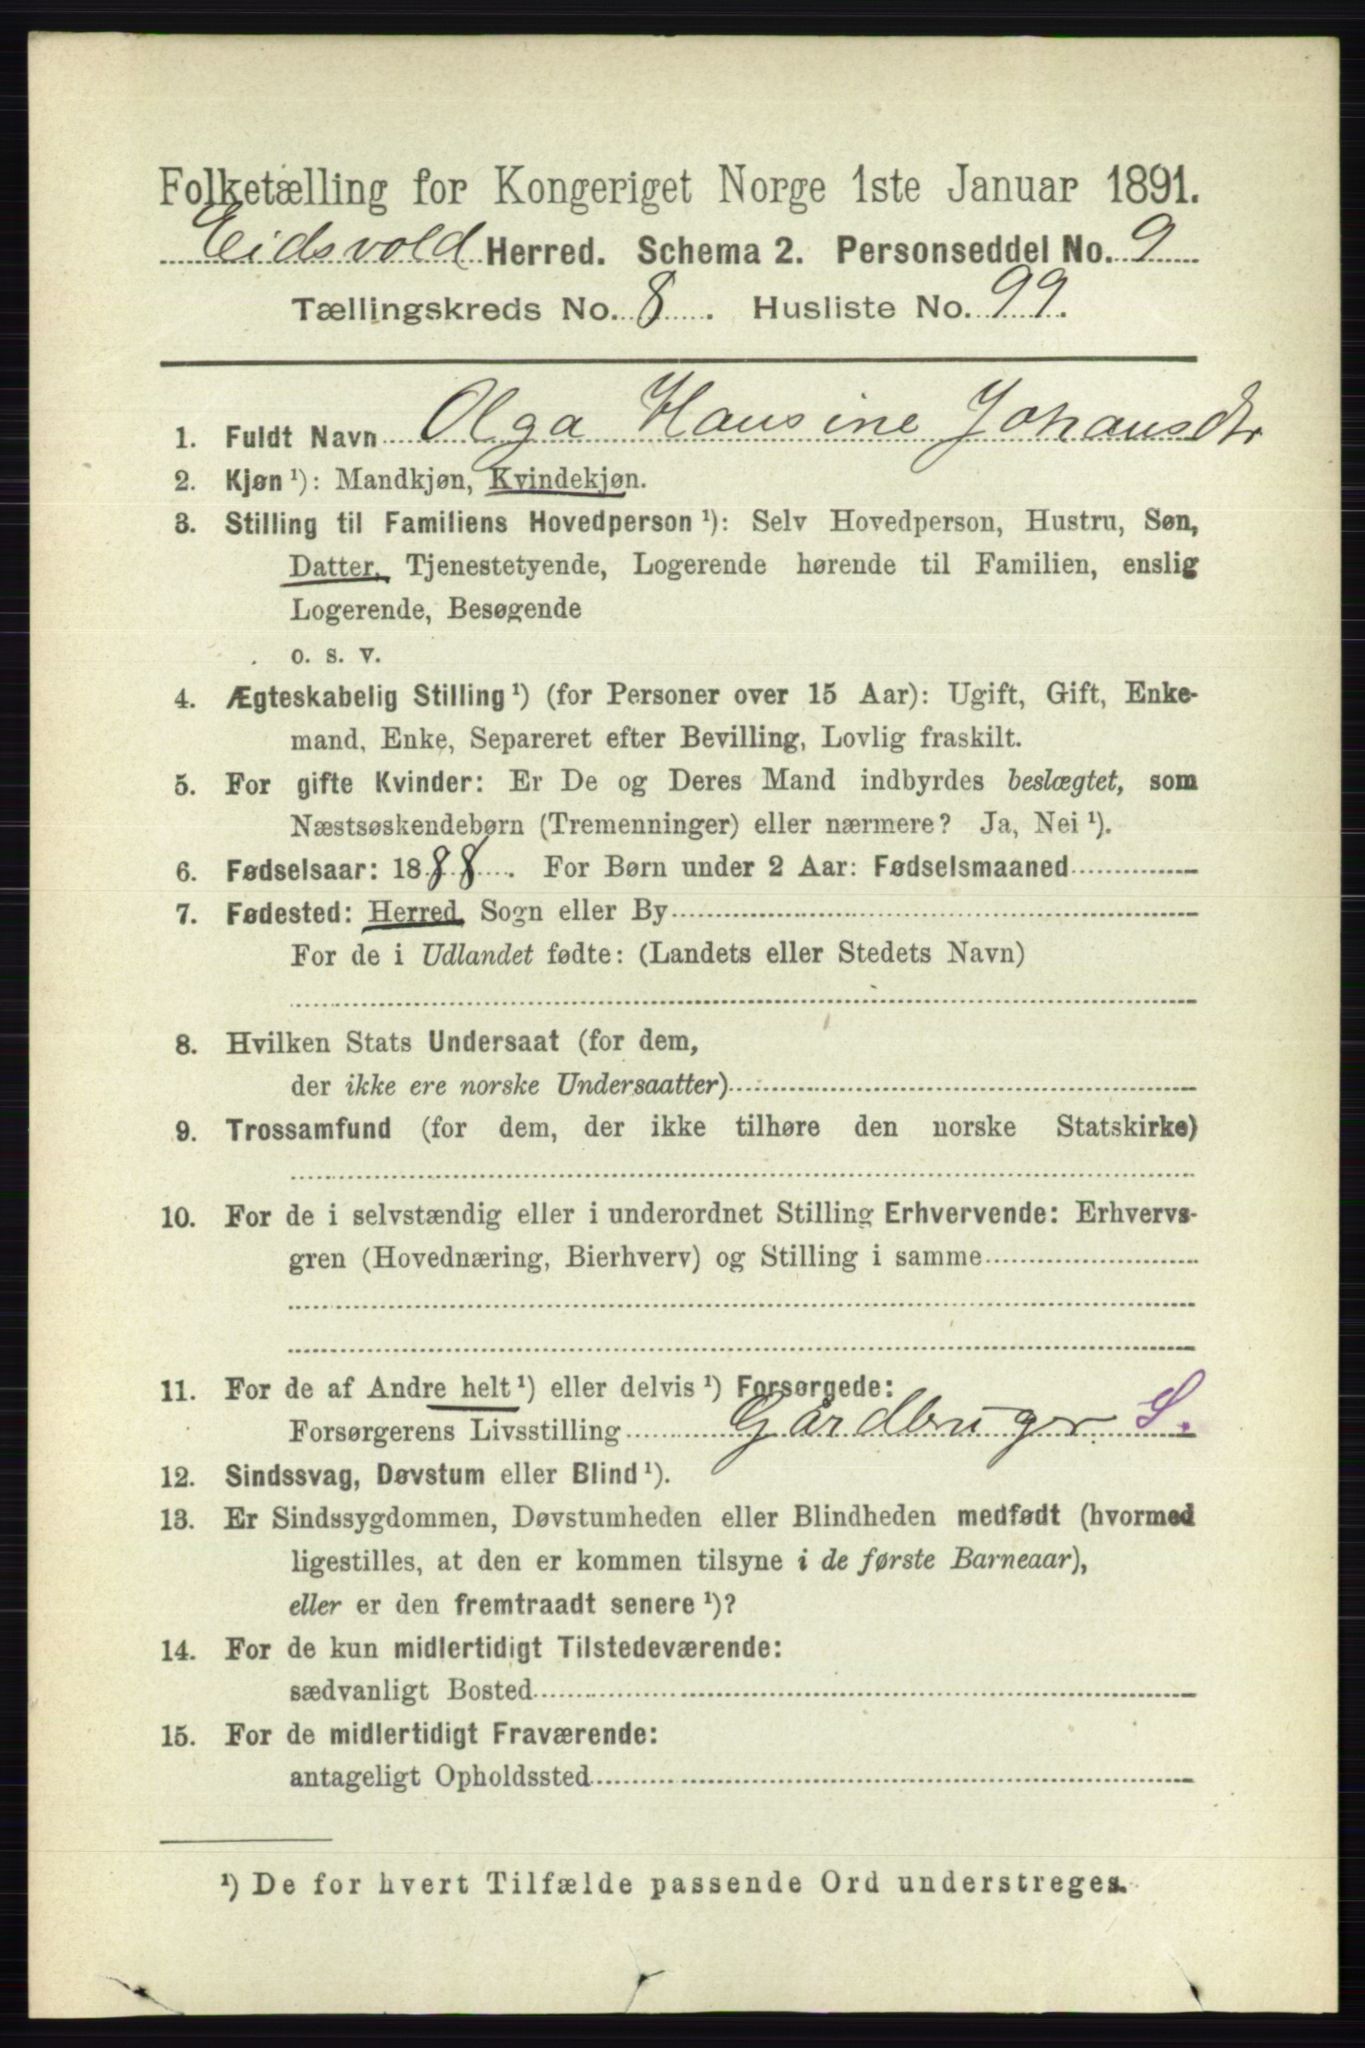 Folketælling for Kongeriget Norge 1ste Januar 1891.
Eidsvold Herred. Schema 2. Personseddel No. 9
Tællingskreds No. 8. Husliste No. 99.
1. Fuldt Navn Olga Hansine Johansdtr
2. Kjøn ¹): Mandkjøn, Kvindekjøn.
3. Stilling til Familiens Hovedperson ¹): Selv Hovedperson, Hustru, Søn,
Datter, Tjenestetyende, Logerende hørende til Familien, enslig
Logerende, Besøgende
o. s. v.
4. Ægteskabelig Stilling ¹) (for Personer over 15 Aar): Ugift, Gift, Enke-
mand, Enke, Separeret efter Bevilling, Lovlig fraskilt.
5. For gifte Kvinder: Er De og Deres Mand indbyrdes beslægtet, som
Næstsøskendebørn (Tremenninger) eller nærmere? Ja, Nei ¹).
6. Fødselsaar: 1888. For Børn under 2 Aar: Fødselsmaaned
7. Fødested: Herred, Sogn eller By
For de i Udlandet fødte: (Landets eller Stedets Navn)
8. Hvilken Stats Undersaat (for dem,
der ikke ere norske Undersaatter)
9. Trossamfund (for dem, der ikke tilhøre den norske Statskirke)
10. For de i selvstændig eller i underordnet Stilling Erhvervende: Erhvervs-
gren (Hovednæring, Bierhverv) og Stilling i samme
11. For de af Andre helt ¹) eller delvis ¹) Forsørgede:
Forsørgerens Livsstilling Gårdbruger S.
12. Sindssvag, Døvstum eller Blind ¹).
13. Er Sindssygdommen, Døvstumheden eller Blindheden medfødt (hvormed
ligestilles, at den er kommen tilsyne i de første Barneaar),
eller er den fremtraadt senere ¹)?
14. For de kun midlertidigt Tilstedeværende:
sædvanligt Bosted
15. For de midlertidigt Fraværende:
antageligt Opholdssted
¹) De for hvert Tilfælde passende Ord understreges.